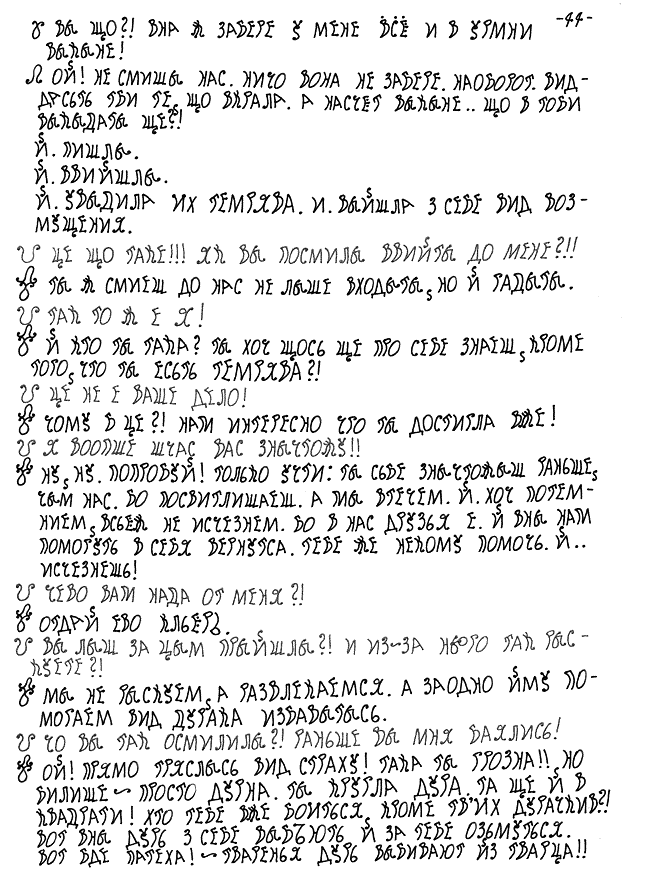 ВЫ ЩО?! ВНА Ж ЗАБЕРЕ У МЕНЕ ВСЁ И В УРМНИ -44-
ВЫКЫНЕ!
ОЙ! НЕ СМИШЫ НАС. НИЧО ВОНА НЕ ЗАБЕРЕ. НАОБОРОТ. ВИД-
ДАСЬТЬ ТВИ ТЕ, ЩО ВКРАЛА. А НАСЧЁТ ВЫКЫНЕ.. ЩО В ТОБИ
ВЫКЫДАТЫ ЩЕ?!
Й. ПИШЛЫ.
Й. ВВИЙШЛЫ.
Й. УВЫДИЛА ИХ ТЕМРЯВА. И. ВЫЙШЛА З СЕБЕ ВИД ВОЗ-
МУЩЕНИЯ.
ЦЕ ЩО ТАКЕ!!! ЯК ВЫ ПОСМИЛЫ ВВИЙТЫ ДО МЕНЕ?!!
ТЫ Ж СМИЕШ ДО НАС НЕ ЛЫШЕ ВХОДЫТЫ, НО Й ГАДЫТЫ.
ТАК ТО Ж Е Я!
Й КТО ТЫ ТАКА? ТЫ ХОЧ ЩОСЬ ЩЕ ПРО СЕБЕ ЗНАЕШ, КРОМЕ
ТОГО, ЧТО ТЫ ЕСЬТЬ ТЕМРЯВА?!
ЦЕ НЕ Е ВАШЕ ДЕЛО!
ЧОМУ В ЦЕ?! НАМ ИНТЕРЕСНО ЧТО ТЫ ДОСТИГЛА ВЖЕ!
Я ВООПШЕ ШЧАС ВАС ЗНЫЧТОЖУ!!
НУ, НУ. ПОПРОБУЙ! ТОЛЬКО УЧТИ: ТЫ СЬБЕ ЗНЫЧТОЖЫШ РАНЬШЕ,
ЧЫМ НАС. БО ПОСВИТЛИШАЕШ. А МЫ ВТЕЧЕМ. Й. ХОЧ ПОТЕМ-
НИЕМ, ВСЬЕЖ НЕ ИСЧЕЗНЕМ. БО В НАС ДРУЗЬЯ Е. Й ВНЫ НАМ
ПОМОГУТЬ В СЕБЯ ВЕРНУТСА. ТЕБЕ ЖЕ НЕКОМУ ПОМОЧЬ. Й..
ИСЧЕЗНЕШЬ!
ЧЕВО ВАМ НАДА ОТ МЕНЯ?!
ОТДАЙ ЕВО
ВЫ ЛЫШ ЗА ЦЫМ ПРЫЙШЛЫ?! И ИЗ~ЗА НЬОГО ТАК РЫС-
КУЕТЕ?!
МЫ НЕ РЫСКУЕМ, А РАЗВЛЕКАЕМСЯ. А ЗАОДНО ЙМУ ПО-
МОГАЕМ ВИД ДУРАКА ИЗБАВЫТЫСЬ.
ЧО ВЫ ТАК ОСМИЛИЛЫ?! РАНЬШЕ ВЫ МНЯ БАЯЛИСЬ!
ОЙ! ПРЯМО ТРЯСЛЫСЬ ВИД СТРАХУ! ТАКА ТЫ ГРОЗНА!! НО
БИЛИШЕ ~ ПРОСТО ДУРНА. ТЫ КРУГЛА ДУРА. ТА ЩЕ Й В
КВАДРАТИ! ХТО ТЕБЕ ВЖЕ БОИТЬСЯ, КРОМЕ ТВ'ИХ ДУРАЧКИВ?!
ВОТ ВНЫ ДУРЬ З СЕБЕ ВЫБЪЮТЬ Й ЗА ТЕБЕ ОЗЬМУТЬСЯ.
ВОТ БДЕ ПАТЕХА! ~ ТВАРЕНЬЯ ДУРЬ ВЫБИВАЮТ ИЗ ТВАРЦА!!